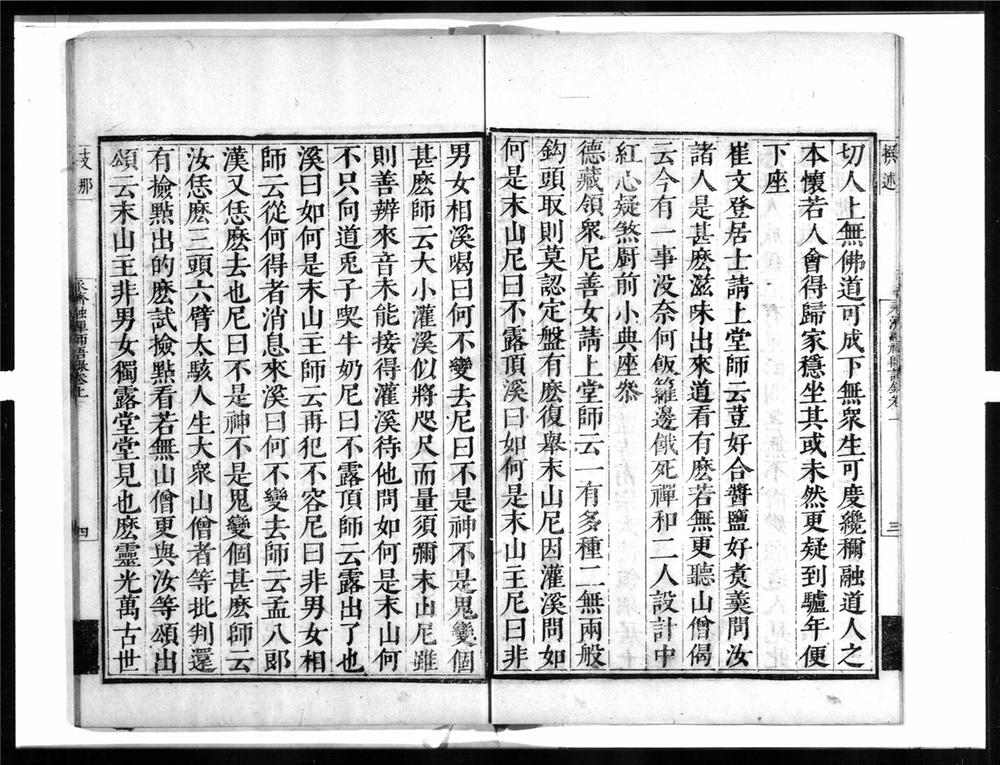 撰述
三
切人上無佛道可成下無衆生可度纔稱融道人之
本懷若人會得歸家穩坐其或未然更疑到驢年便
下座
崔文登居士請上堂師云荳好合醬鹽好煑羮問汝
諸人是甚麽滋味出來道看有麽若無更聽山僧偈
云今有一事没奈何飯籮邊餓死禪和二人設計中
紅心疑煞厨前小典座叅
德藏領衆尼善女請上堂師云一有多種二無兩般
鈎頭取則莫認定盤有麽復舉末山尼因灌溪問如
何是末山尼曰不露頂溪曰如何是末山主尼曰非
男女相溪喝曰何不變去尼曰不是神不是鬼變個
甚麽師云大小灌溪似將咫尺而量須彌末山尼雖
則善辨來音未能接得灌溪待他問如何是末山何
不只向道兎子喫牛奶尼曰不露頂師云露出了也
溪曰如何是末山主師云再犯不容尼曰非男女相
師云從何得者消息來溪曰何不變去師云孟八郎
漢又恁麽去也尼曰不是神不是鬼變個甚麽師云
汝恁麽三頭六臂太駭人生大衆山僧者等批判還
有撿點出的麽試撿點看若無山僧更與汝等頌出
頌云末山主非男女獨露堂堂見也麽靈光萬古世
支那
融禪師語録卷上
四